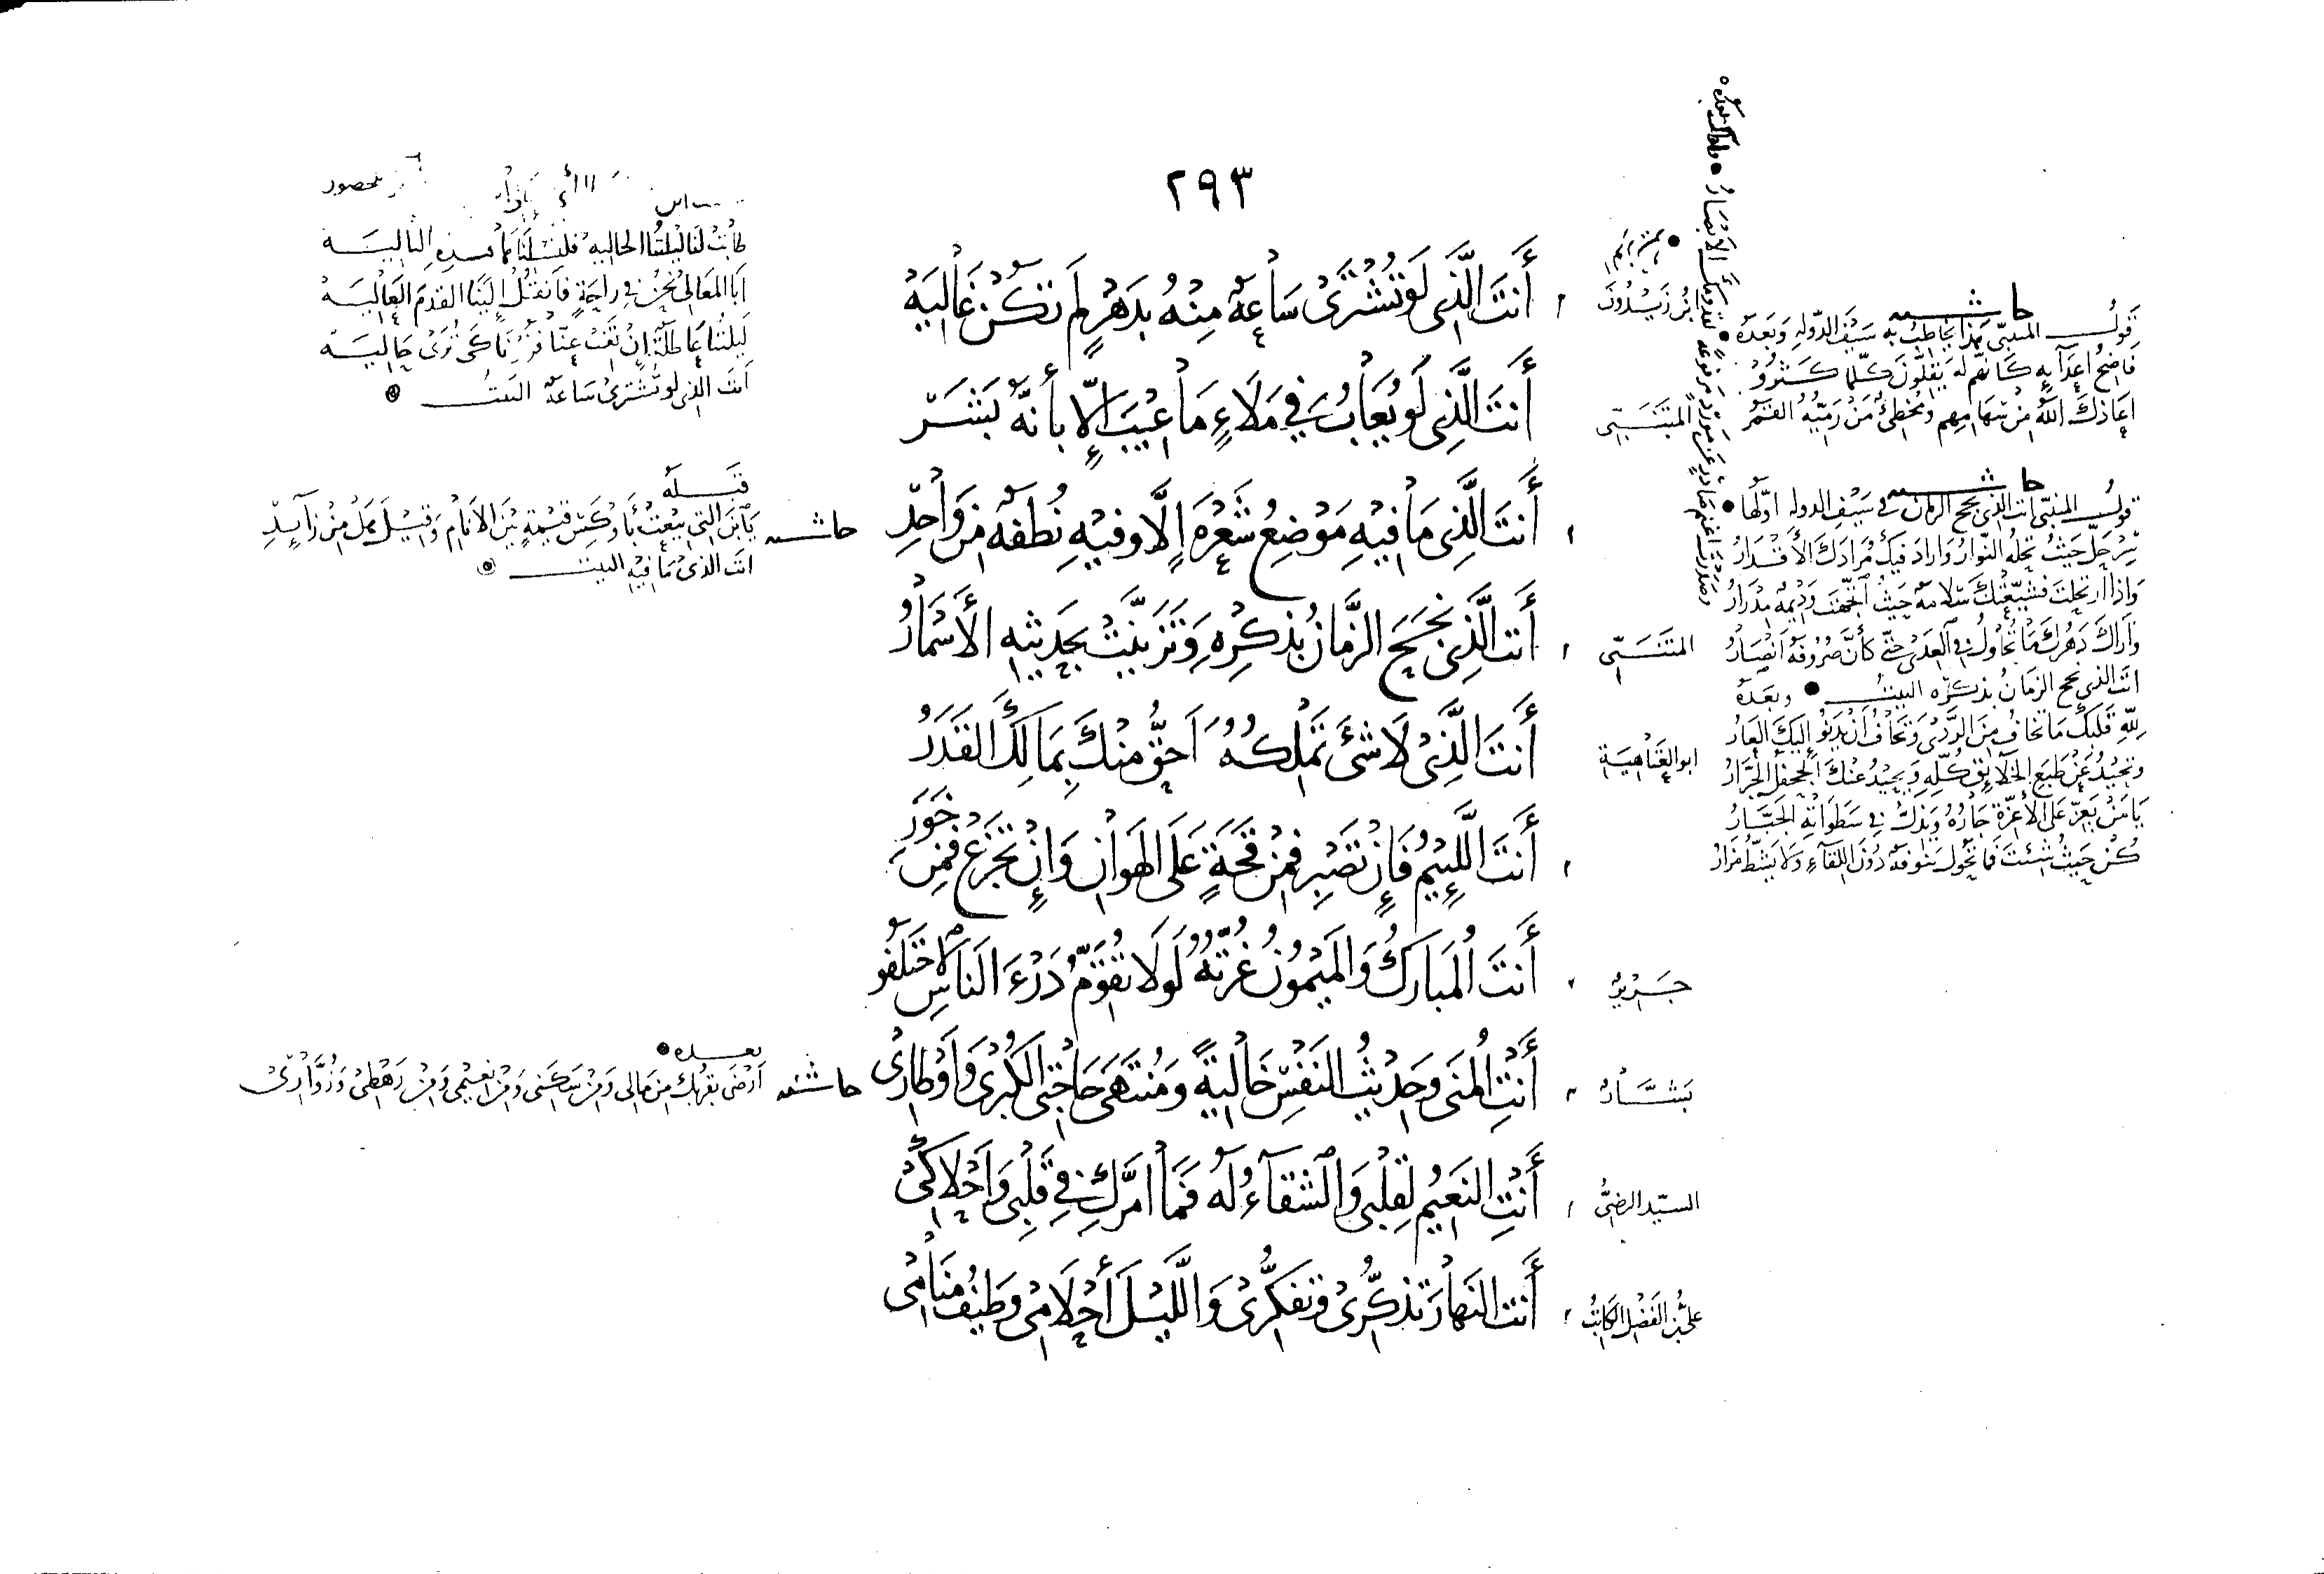 ٢٩٣
ابن زيدون
أَنتَ الَّذِي لَوْ تُشْتَرَىْ سَاعَةٌ مِنْهُ بِدَهْرٍ لَم تَكُنْ غَالِيَهْ
المتنبي
أَنتَ الَّذِي لَو يُعَابُ فِي مَلَاءٍ مَا عِيْبَ إِلَّا بِأَنَّهُ بَشَرُ
أَنتَ الَّذِي مَا فِيْهِ مَوْضِعُ شَعْرَةٍ إِلَّا وَفِيْهِ نُطْفَةٌ مِن وَاحِدِ
المتنبي
أَنتَ الَّذِي بَجَحَ الزَّمَانُ بِذِكْرِهِ وَتَزَيَّنَتْ بِحَدِيْثِهِ الأَسْمَارُ
ابو العتاهية
أَنتَ الَّذِيْ لَا شَيْءَ تَمْلِكُهُ أَحَقُّ مِنْكَ بِمَالِكَ القَدَرُ
أَنتَ اللَّئِيْمُ فَإِنْ تَصْبِر فَمِنْ قِحَةٍ عَلَى الهَوَانِ وَإِنْ تَجْزَعْ فَمِن خَوَرِ
جرير
أَنتَ المُبَارَكُ وَالمَيْمُونُ غُرَّتُهُ لَولَا تُقَوِّمُ دَرْءَ النَاسِ لَاخْتَلَفُوا
بشار
أَنْتِ المُنَى وَحَدِيْثُ النَفْسِ خَالِيَةً وَمُنْتَهَى حَاجَتِي الكُبْرَى وَأَوْطَارِيْ
السيد الرضي
أَنْتِ النَعِيْمُ لِقَلْبِي وَالشَقَاءُ لَهُ فَمَا أَمَرَّكِ فِي قَلْبِي وَأَحْلَاكِيْ
علي بن الفضل الكاتب
أَنتَ النَهَارَ تَذَكُّرِيْ وَتَفَكُّرِيْ وَاللَّيْلَ أَحْلَامِيْ وَطَيْفُ مَنَامِيْ
حاشيه
قول المتنبي هذا يخاطب به سيف الدولة وبعده
فاضح اعدائه كانهم له يقلون كلما كثروا
اعاذك الله من سهامهم ومخطئ من رميه القمر
حاشيه
قول المتنبي انت الذي بجح الزمان في سيف الدولة اولها
سر حل حيث تحله النوار واراد فيك مرادك الاقدار
واذا ارتحلت فشيعتك سلامة حيث اتجهت وديمة مدرار
واراك دهرك ما تحاول في العدى حتى كأن صروفه انصار
انت الذي بجح الزمان بذكره البيت وبعده
لله قلبك ما تخاف من الردى وتخاف ان يدنو إليك العار
وتحيد عن طبع الخلائق كله ويحيد عنك الجحفل الجرار
يا من يعز على الاعزة جاره ويذل في سطواته الجبار
كن حيث شئت فما تحول تنوفة دون اللقاء ولا يشط مزار
طابت لنا ليلتنا الخاليه
ابا المعالي نحن في راحة فانقل إلينا القدم العاليه
ليلتنا عاطلة إن تغب عنا فزرنا كي ترى حاليه
انت الذي لو تشترى ساعة البيت
حاشيه
قبله
يا ابن التي بيعت باوكس قيمة بين الانام وقيل هل من زايد
انت الذي ما فيه البيت
حاشيه
بعده
ارضى بقربك من مالي ومن سكني ومن نعيمي ومن رهطي وزواري